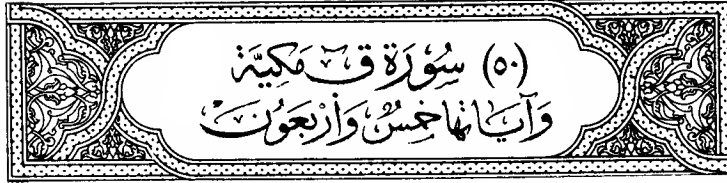 (٥٠) سُوْرَة قۤ مَكيَّة
وَآيَاتهَا خَمسٌ وَأَرْبَعُونَ